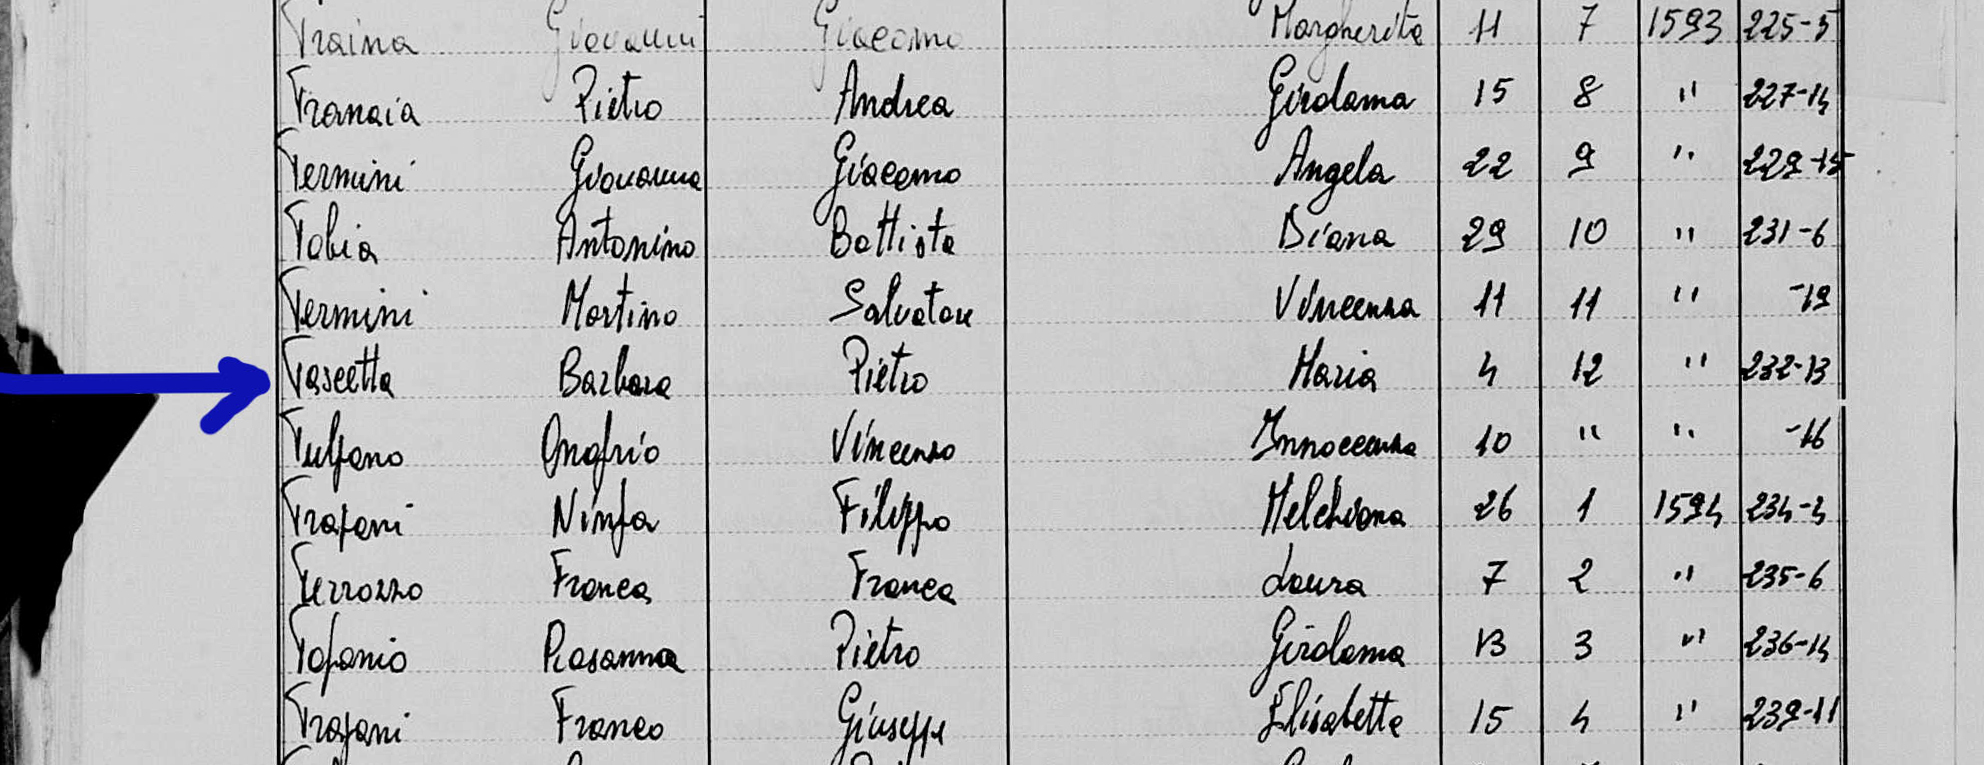 Traina Giovanni Giacomo Margherita 11 7 1593 225-5
Tranaia Pietro Andrea Girolama 15 8 " 227-14
Termini Giovanna Giacomo Angela 22 9 " 229-15
Tobia Antonino Battista Diana 29 10 " 231-6
Termini Martino Salvatore Vincenza 11 11 " -19
Tascetta Barbara Pietro Maria 4 12 " 232-13
Tulfano Onofrio Vincenzo Innocenza 10 " " -16
Trapani Ninfa Filippo Melchiona 26 1 1594 234-3
Terrozzo Franca Franca Laura 7 2 " 235-6
Tofanio Rosanna Pietro Girolama 13 3 " 236-14
Trapani Franco Giuseppe Elisabetta 15 4 " 239-11